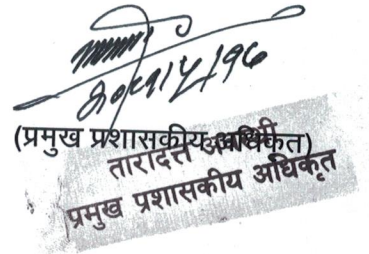 (प्रमुख प्रशासकीय अधिकृत)
तारादत्त अवस्थी
प्रमुख प्रशासकीय अधिकृत